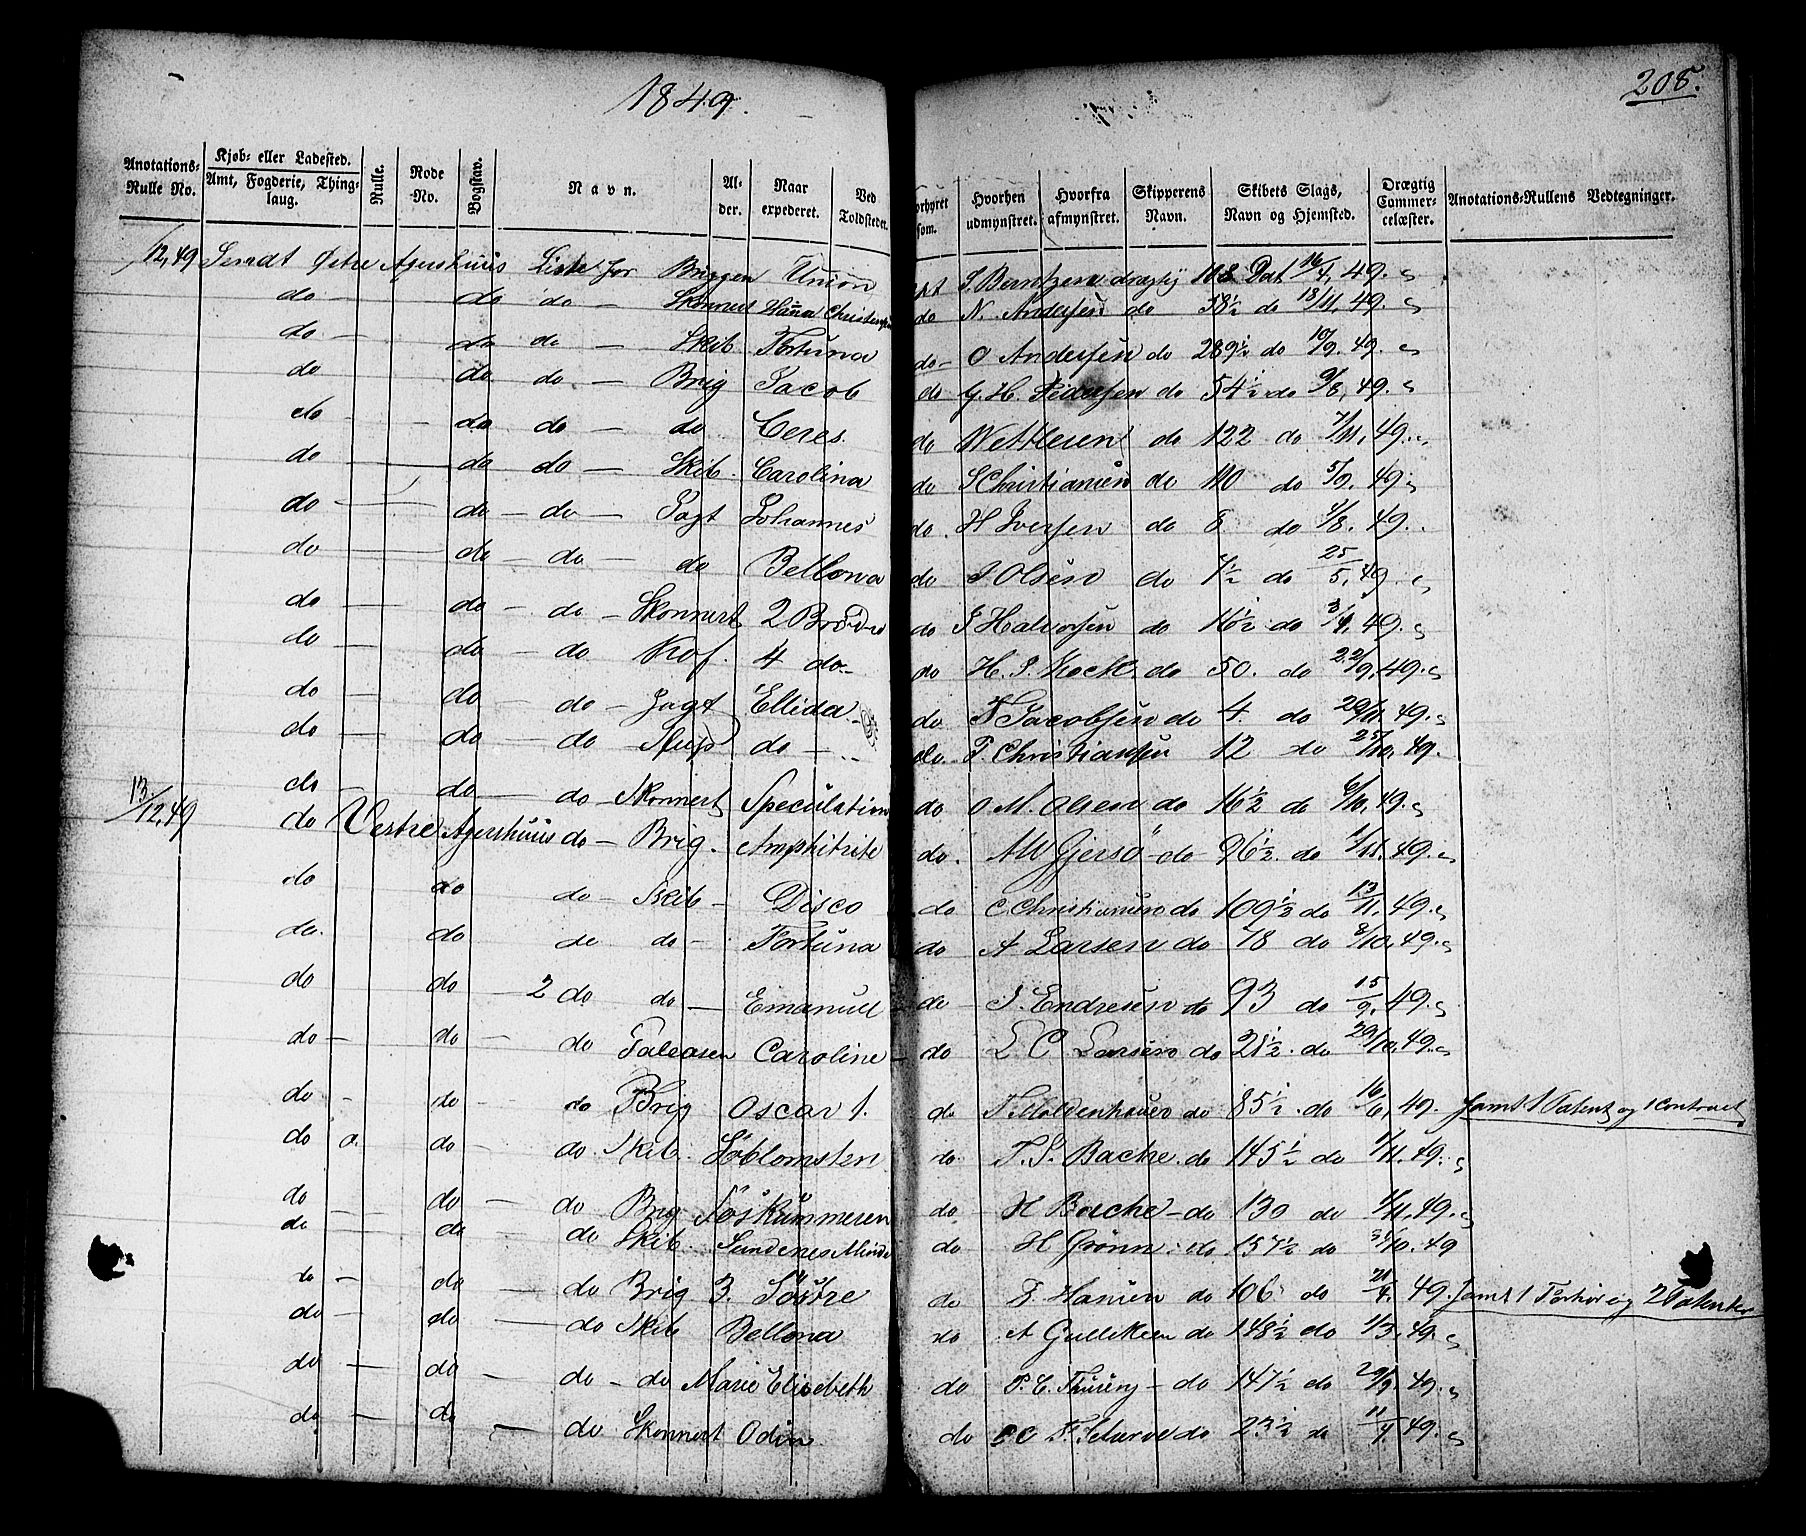 1849.
208.
Anotations-Rulle No. Kjøb- eller Ladested. Amt, Fogderie, Thinglaug. Rulle. Rode-No. Bogstav. Navn. Alder. Naar expederet. Ved Toldstedet. Forhyret som. Hvorhen udmynstret. Hvorfra afmynstret. Skipperens Navn. Skibets Slags, Navn og Hjemsted. Drægtig Commercelæster. Anotations-Rullens Vedtegninger.
/12,49 Sendt Østre Agershuus Liste for Briggen Union J. Berntzen drægtig 118 Dat 16/4, 49.
do - do do - Skonnert Hanna Christensen do N. Andersen do 58½ do 18/11, 49.
do do do - Skib Fortuna do - O Andersen do 289½ do 10/9. 49.
do do do - Brig Jacob do G. H. Pedersen do 54½ do 9/8, 49.
do - do do - do Ceres. do Wettlesen do 122 do 7/11, 49.
do do do - Skib. Carolina do S Christiansen do 110 do 5/9. 49
do do - do - Jagt Johannes do. H Iversen do 8 do 4/8. 49.
do do - do - do Bellona do J Olsen do 7½ do 25/5, 49.
do - do - do - Skonnert 2 Brødre do J Halvorsen do 16½ do 3/4, 49.
do - do - do Kof. 4 do - do H. P. Koch do 50. do 22/9, 49.
do - do - do - Jagt Ellida do N Jacobsen do 4. do 20/11. 49.
do - do - do Slup do - do P. Christiansen 12 do 25/10, 49.
do do - do - Skonnert Speculation do O M. Olsen do 16½ do 6/10, 49.
13/12,49 do Vestre Agershuus do - Brig. Amphitrite do. A W Gjersø - do 96½. do 1/11. 49.
do do do - Skib - Disco do C. Christiansen do 109½ do 13/11, 49.
do. do do do - Fortuna do A Larsen do 78 do 8/10, 49.
do do - 2 do do - Emanuel do J. Endresen do 93 do 15/9, 49.
do - do - do Galeasen Caroline do L C Larsen do 21½. do 29/10, 49.
do - do - do Brig Oscar 1. do T. Moldenhauer do 85½. do 16/6, 49. samt 1 Patent og 1 Contract
do do - do Skib. Søblomsten do. T. S. Bache. do 145½ do 1/11. 49.
do - do - do Brig Tøskummeren do. H Bache - do 130 do 1/11, 49.
do - do - do Skib. Sandenes Minde do H Grønn. do 157½ do /10. 49
do - do - do Brig 3. Søstre do. Hansen do 106 do 21/4, 49. samt 1 Forhør og 2 Patenter
do - do - do Skib Bellona do A Gulliksen do 148½ do 1/3, 49.
do - do - do - do Marie Elisabeth do P. C. Thuring - do 147½ do 29/9, 49.
do - do - do Skonnert Odin. do do 23½ do 11/9. 49.